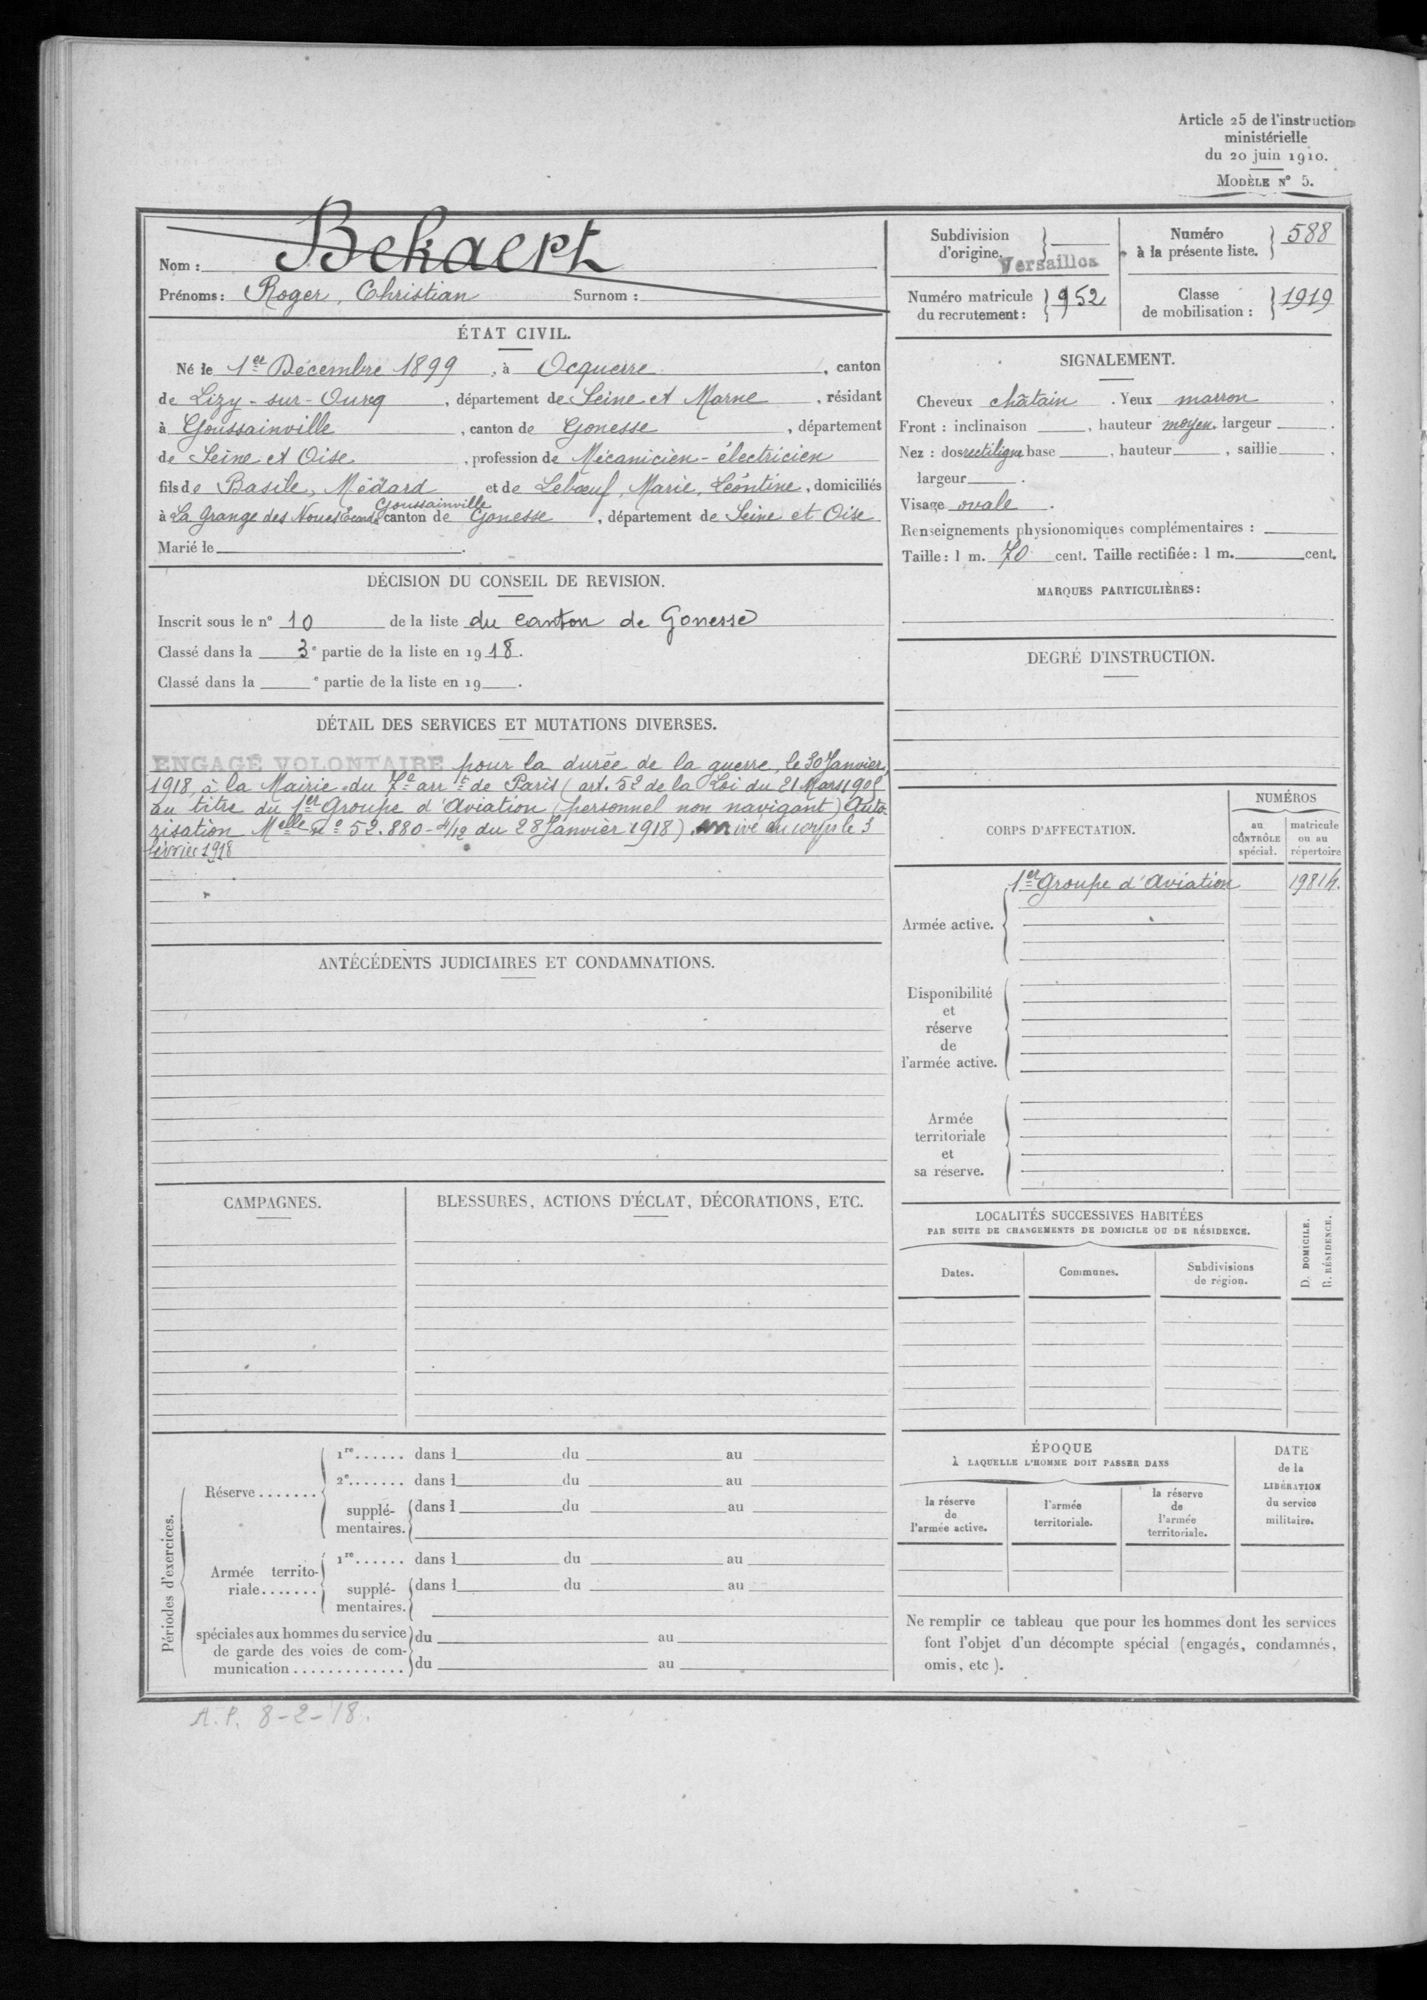 Article 25 de l'instruction
ministérielle
du 20 juin 1910.
MODÈLE N° 5.
Nom : Bekaert
Prénoms : Roger, Christian Surnom :
Subdivision d'origine. Versailles
Numéro à la présente liste. 588
Numéro matricule du recrutement : 952
Classe de mobilisation : 1919
ÉTAT CIVIL.
Né le 1er Décembre 1899, à Ocquerre, canton
de Lizy-sur-Ourcq, département de Seine et Marne, résidant
à Goussainville, canton de Gonesse, département
de Seine et Oise, profession de Mécanicien-électricien
fils de Basile, Médard et de Lebœuf, Marie, Léontine, domiciliés
Goussainville
à La Grange des Noues canton de Gonesse, département de Seine et Oise
Marié le .
DÉCISION DU CONSEIL DE REVISION.
Inscrit sous le n° 10 de la liste du canton de Gonesse
Classé dans la 3e partie de la liste en 1918.
Classé dans la e partie de la liste en 19 .
DÉTAIL DES SERVICES ET MUTATIONS DIVERSES.
ENGAGÉ VOLONTAIRE pour la durée de la guerre, le 30 Janvier
1918, à la Mairie du 7e arrt de Paris (art. 52 de la Loi du 21 Mars 1905
au titre du 1er Groupe d'Aviation (personnel non navigant) Auto-
risation Melle n° 52.880-4/12 du 28 Janvier 1918). Arrivé au corps le 3
février 1918
ANTÉCÉDENTS JUDICIAIRES ET CONDAMNATIONS.
CAMPAGNES.
BLESSURES, ACTIONS D'ÉCLAT, DÉCORATIONS, ETC.
Périodes d'exercices.
Réserve.......
1re...... dans 1 du au
2e....... dans 1 du au
supplé-
mentaires. dans 1 du au
Armée territo-
riale.......
1re...... dans 1 du au
supplé-
mentaires. dans 1 du au
spéciales aux hommes du service du au
de garde des voies de com-
munication.............. du au
SIGNALEMENT.
Cheveux châtain. Yeux marron,
Front : inclinaison , hauteur moyen, largeur .
Nez : dos rectiligne base , hauteur , saillie ,
largeur .
Visage ovale.
Renseignements physionomiques complémentaires :
Taille : 1 m. 70 cent. Taille rectifiée : 1 m. cent.
MARQUES PARTICULIÈRES :
DEGRÉ D'INSTRUCTION.
CORPS D'AFFECTATION.
NUMÉROS
au
CONTRÔLE
spécial.
matricule
ou au
répertoire
1er Groupe d'Aviation 19814.
Armée active.
Disponibilité
et
réserve
de
l'armée active.
Armée
territoriale
et
sa réserve.
LOCALITÉS SUCCESSIVES HABITÉES
PAR SUITE DE CHANGEMENTS DE DOMICILE OU DE RÉSIDENCE.
Dates.
Communes.
Subdivisions
de région.
D. DOMICILE.
R. RÉSIDENCE.
ÉPOQUE
À LAQUELLE L'HOMME DOIT PASSER DANS
la réserve
de
l'armée active.
l'armée
territoriale.
la réserve
de
l'armée
territoriale.
DATE
de la
LIBÉRATION
du service
militaire.
Ne remplir ce tableau que pour les hommes dont les services
font l'objet d'un décompte spécial (engagés, condamnés,
omis, etc ).
A.P. 8-2-18.